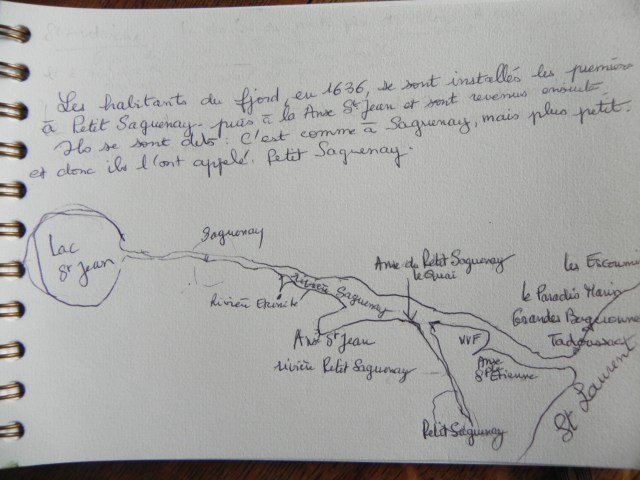 Les habitants du fjord, en 1636, se sont installés les premiers
à Petit Saguenay. puis à la Anse St Jean et sont revenus ensuite.
Ils se sont dits: C'est comme à Saguenay, mais plus petit.
et donc ils l'ont appelé. Petit Saguenay.
Saguenay
Lac
St Jean
Anse du Petit Saguenay
le Quai
les Escoumi
le Paradis Marin
Grandes Bergeronne
Tadoussac
Rivière Saguenay
Rivière Eternité
Anse St Jean
VVF
Anse
St Etienne
rivière Petit Saguenay
St Laurent
Petit Saguenay